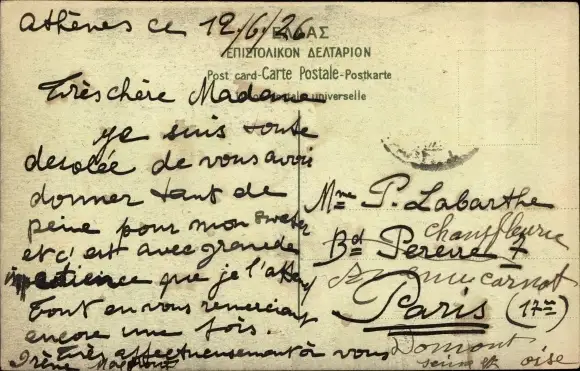 Athènes ce 12/6/26
ΕΛΛΑΣ
ΕΠΙΣΤΟΛΙΚΟΝ ΔΕΛΤΑΡΙΟΝ
Post card-Carte Postale-Postkarte
universelle
Très chère Madame
je suis toute
desolée de vous avoir
donner tant de
peine pour mon sweter
et c'est avec grande
impatience que je l'attend
Tout en vous remerciant
encore une fois.
Très affectueusement à vous
Irène
Mme P. Labarthe
Bd Pereire 7
Paris (17me)
chauffeurie
Avenue Carnot
Domont
seine et oise